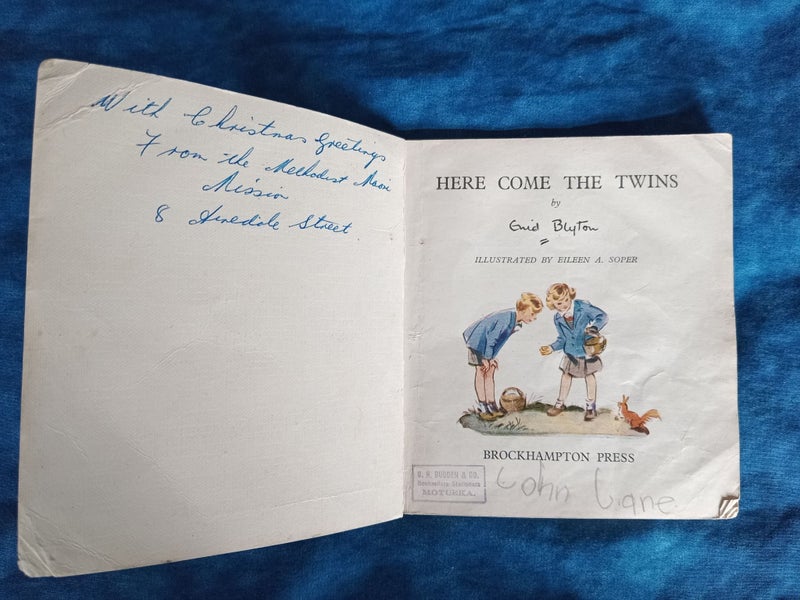 With Christmas Greetings
From the Methodist Maori
Mission
8 Airedale Street
HERE COME THE TWINS
by
Enid Blyton
ILLUSTRATED BY EILEEN A. SOPER
BROCKHAMPTON PRESS
& CO.
Booksellers, Stationers
MOTUEKA.
John Lane